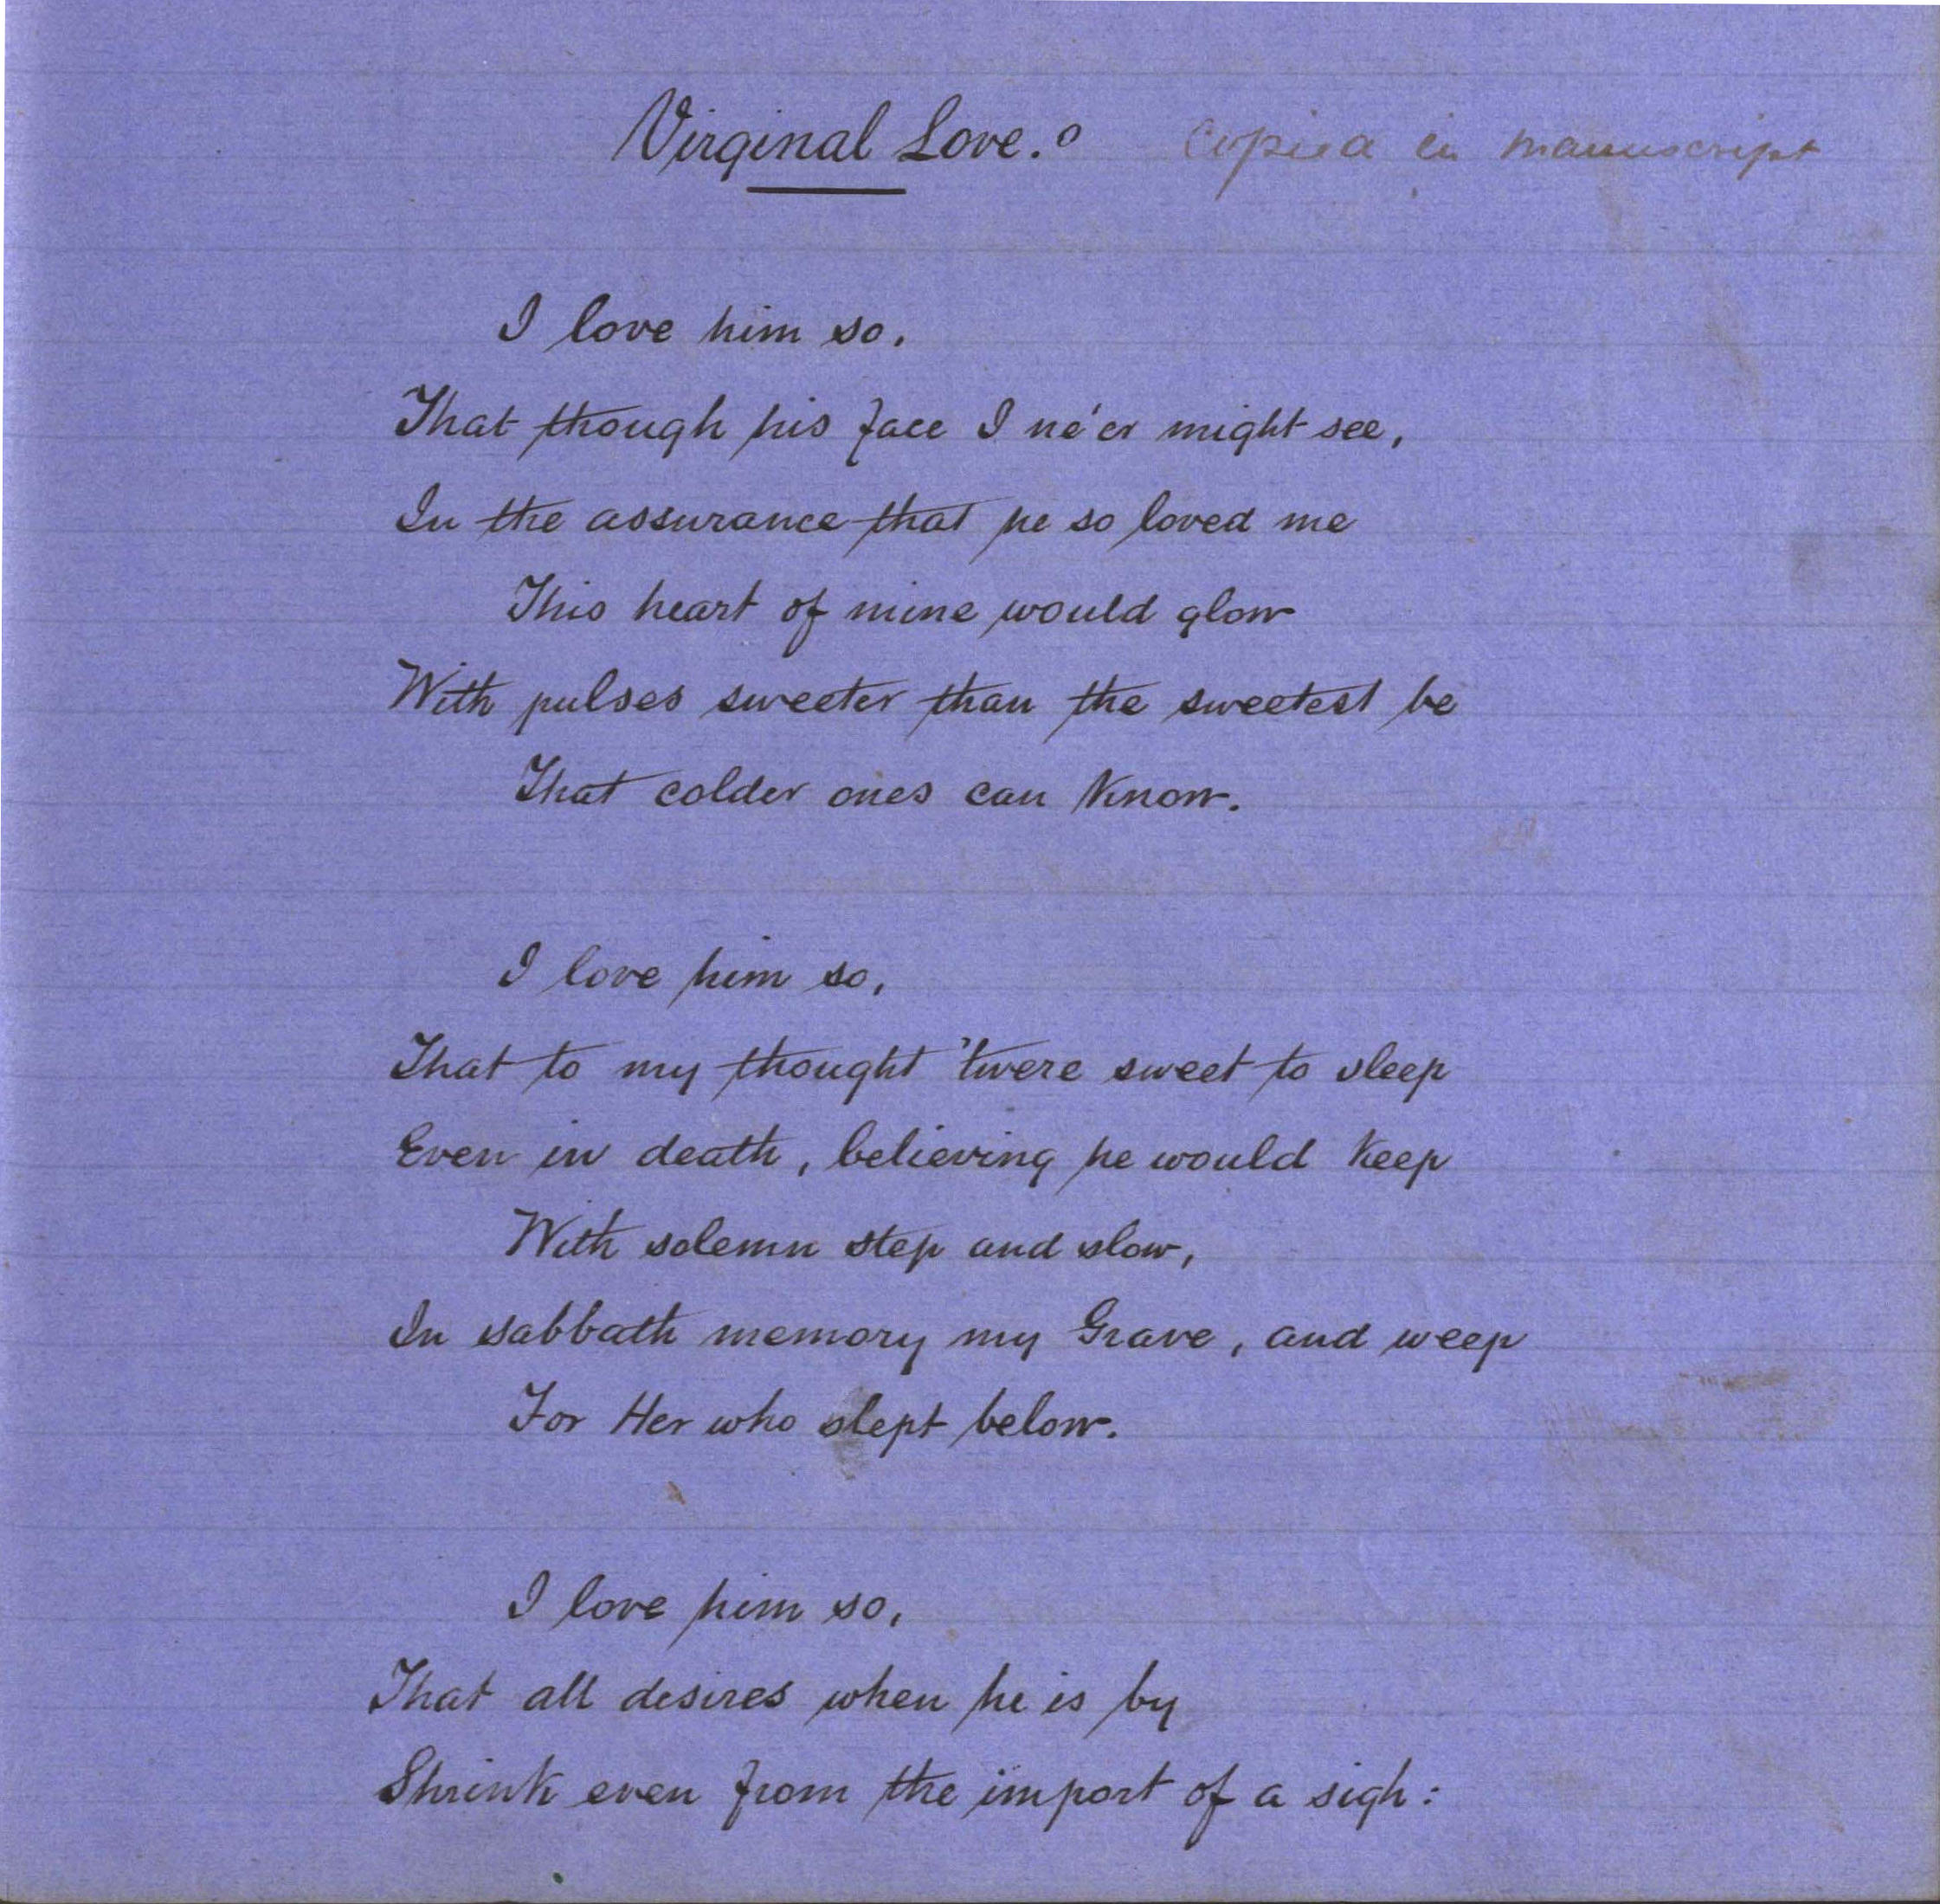 Virginal Love.° Copied in manuscript
I love him so.
That though his face I ne'er might see,
In the assurance that he so loved me
This heart of mine would glow
With pulses sweeter than the sweetest be
That colder ones can know.
I love him so,
That to my thought 'twere sweet to sleep
Even in death, believing he would keep
With solemn step and slow,
In sabbath memory my Grave, and weep
For Her who slept below.
I love him so,
That all desires when he is by
Shrink even from the import of a sigh: